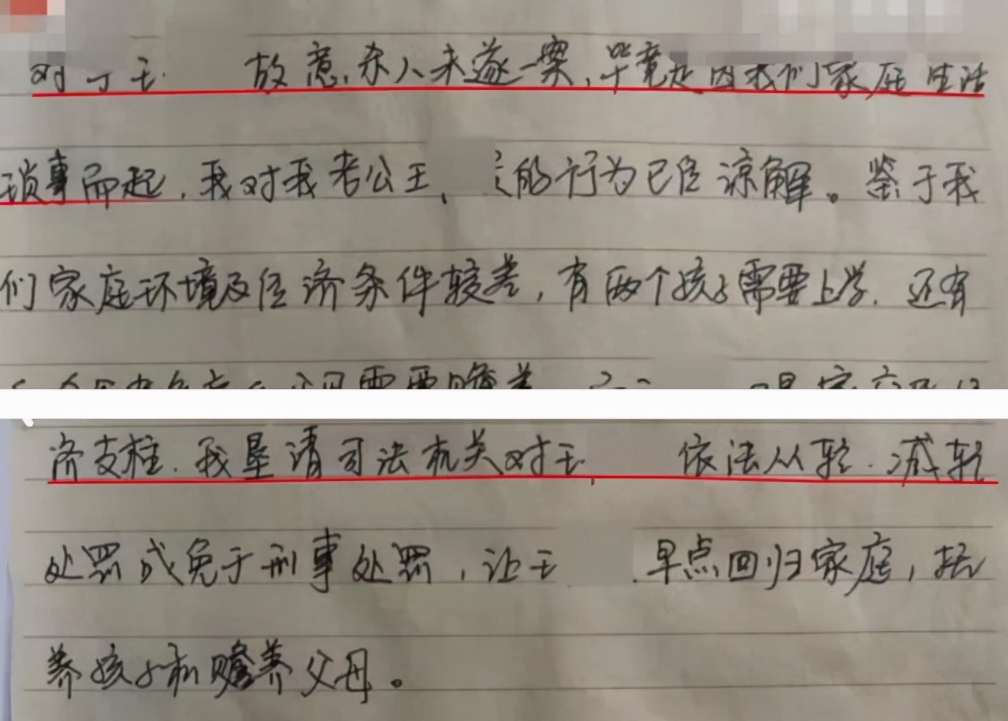 对于王 故意杀人未遂一案,毕竟是因我们家庭生活
琐事而起,我对我老公王 的行为已经谅解。鉴于我
们家庭环境及经济条件较差,有两个孩子需要上学.还有
需要赡养
济支柱.我垦请司法机关对王 依法从轻.减轻
处罚或免于刑事处罚,让王 早点回归家庭,抚
养孩子和赡养父母。